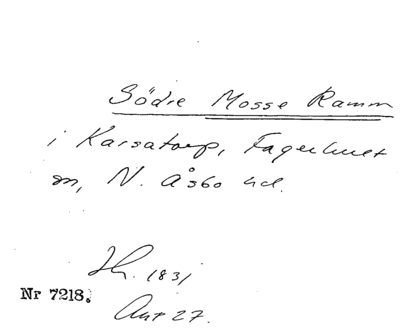 Södre Mosse Ramm
i Karsatorp, Fagerhult
sn, N. Åsbo hd.
Jh. 1831
Nr 7218.
Ant 27.